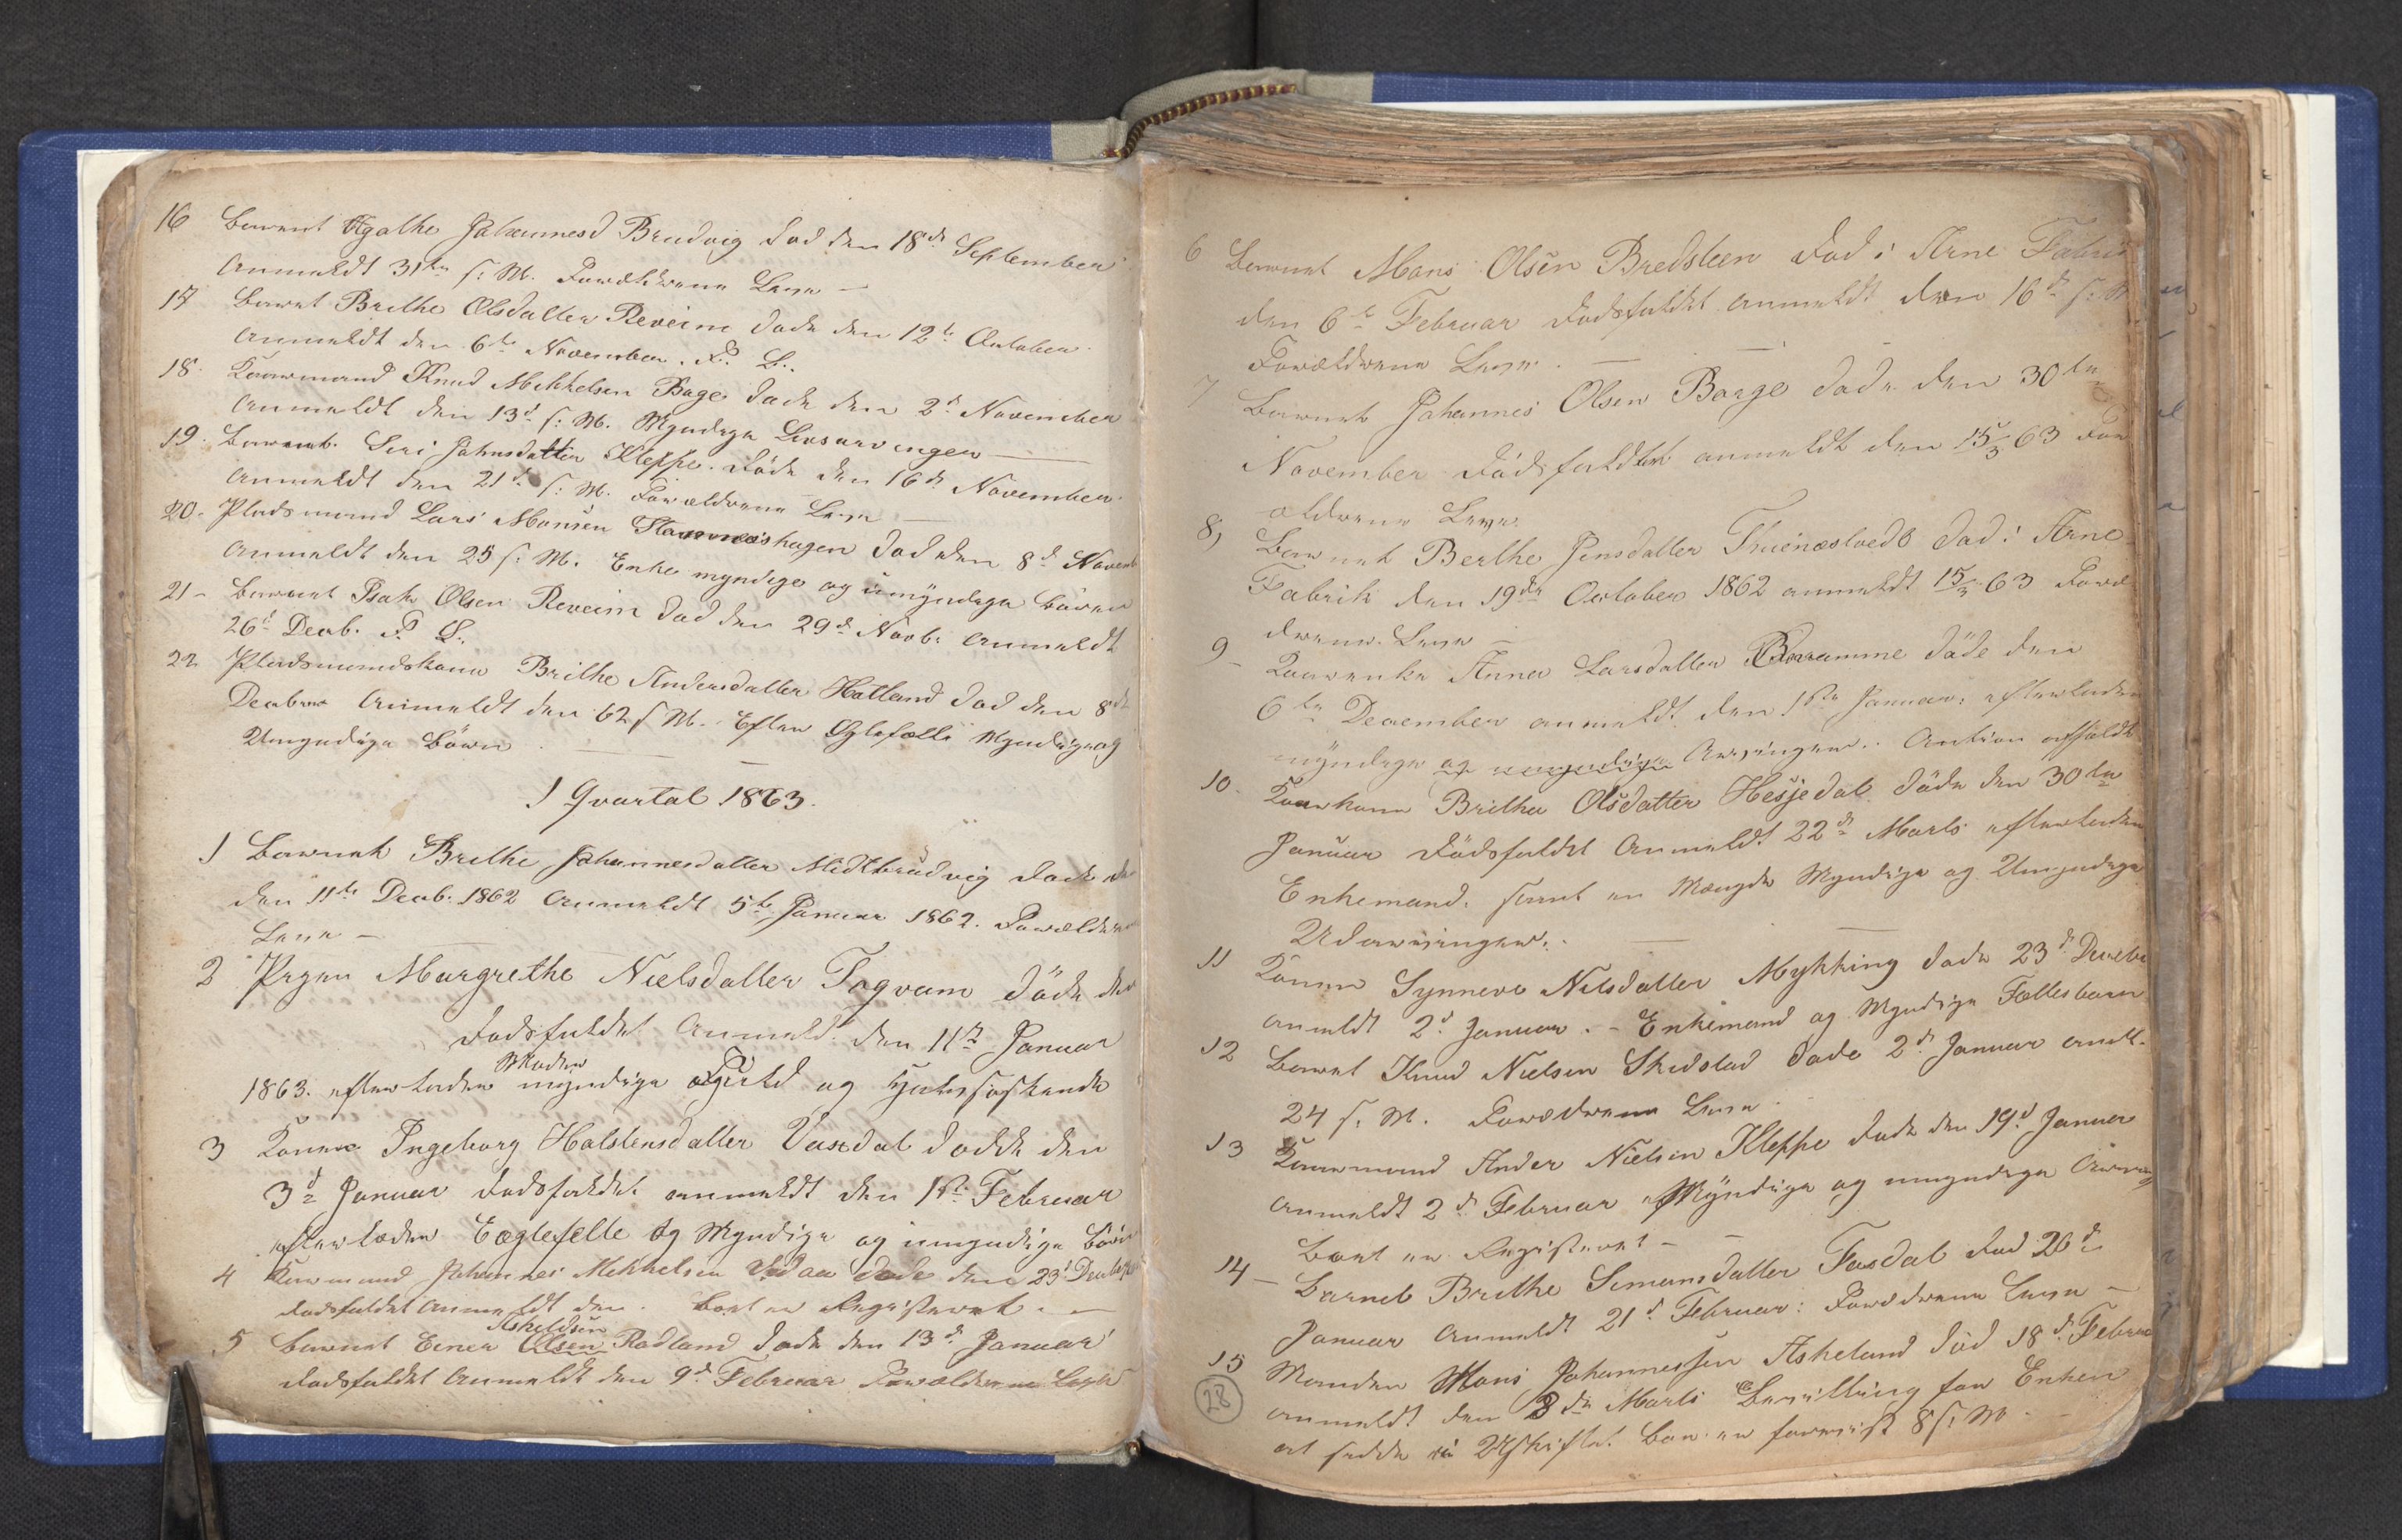 16 Barnet Agathe Johannesd Brudvig død den 18de September
Anmeldt 31te s: M. Forældrene Leve –
17 Barnet Brithe Olsdatter Reveim døde den 12te October
Anmeldt den 6te November. F. L.
18. Kaarmand Knud Mikkelsen Bage døde den 2d November
Anmeldt den 13d s: M. Myndige Livsarvinger
19. Barnet Siri Johnsdatter Kleppe. døde den 16de November
Anmeldt den 21de s: M. Forældrene Leve
20. Pladsmand Lars Monsen Stavneshagen død den 8d Novemb
Anmeldt den 25 s: M. Enke myndige og umyndige Børn
21 – Barnet Isak Olsen Reveim død den 29de Novb: Anmeldt
26d Decb. F. L.
22 Pladsmandskone Brithe Andersdatter Hatland død den 8de
Decbr Anmeldt den 62 s M. Efter Egtefælle Myndige og
Umyndige Børn
1 Qvartal 1863.
1 Barnet Brithe Johannesdatter Midtbrudvig døde
den 11te Decb. 1862 Anmeldt 5te Januar 1862. Forældrene
Leve –
2 Pigen Margrethe Nielsdatter Togvam døde den
Dødsfaldet Anmeldt den 11te Januar
Moder
1863. efterlader myndige og Halvsøskende
3 Konen Ingeborg Halstensdatter Vaxdal døde den
3d Januar dødsfaldet anmeldt den 1ste Februar
efterlader Egtefelle og Myndige og umyndige Børn
4 Kaarmand Johannes Mikkelsen Vedaa døde den 23d Decbr
dødsfaldet anmeldt den. Boet er Registeret. –
Askeldsen
5 Barnet Einer Olsen Rødland døde den 13de Januar
dødsfaldet Anmeldt den 9d Februar Forældrene Leve
6 Barnet Mons Olsen Bredsteen død i Arne Fabrik
den 6te Februar Dødsfaldet anmeldt den 16de s: M
Forældrene Leve. –
7 Barnet Johannes Olsen Borge døde den 30te
November Dødsfaldet anmeldt den 15/3 63 For
ældrene Leve.
8, Barnet Berthe Jensdatter Thunestvedt død i Arne
Fabrik den 19de October 1862 anmeldt 15/3 63 Foræl
drene Leve –
9 – Kaarenke Anna Larsdatter Bramme døde den
6te December anmeldt den 1ste Januar: efterlader
myndige og umyndige Arvinger. Auktion afholdt
10. Kaarkone Brithe Olsdatter Hesjedal døde den 30te
Januar Dødsfaldet Anmeldt 22de Marts efterlader
Enkemand. samt en Mængde Myndige og Umyndige
Udarvinger.
11 Konen Synneve Nilsdatter Mykking døde 23d Decebr
anmeldt 2d Januar. – Enkemand og Myndige Fællesbørn
12 Barnet Knud Nielsen Skedstad døde 2d Januar anm.
24 s. M. Forældrene Leve.
13 Kaarmand Ander Nielsen Kleppe døde den 19d Januar
Anmeldt 2d Februar Myndige og umyndige Arvin
Boet er Registeret –
14 – Barnet Brithe Simensdatter Fosdal død 20d
Januar Anmeldt 21d Februar: Forældrene Leve –
15 Manden Mons Johannessen Askeland død 18d Februa
anmeldt den 3de Marts Bevilling for Enken
at sidde i Uskiftet Bo er forevist 8 s: M
28